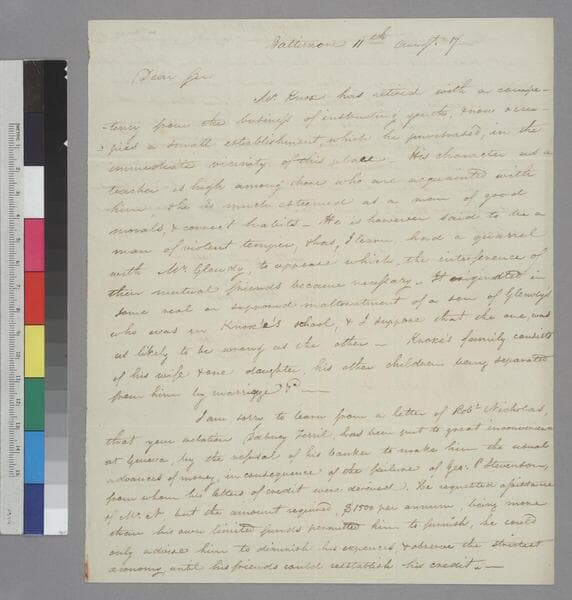 Baltimore 11th Augt. 17
Dear Sir
Mr. Knox has retired with a compe-
-tency from the business of instructing youth, & now occu-
pies a small establishment, which he purchased, in the
immediate vicinity of this place - His character as a
teacher is high among those who are acquainted with
him, & he is much esteemed as a man of good
morals, & correct habits - He is however said to be a
man of violent temper, & has, I learn, had a quarrel
with Mr. Glendy, to appease which, the interference of
their mutual friends became necessary - It originated in
some real or supposed maltreatment of a son of Glendy's
who was in Knox's school, & I suppose that the one, was
as likely to be wrong as the other - Knox's family consists
of his wife & one daughter, his other children being separated
from him by marriage &c. -
I am sorry to learn from a letter of Robt. Nicholas,
that your relation Dabney Terril, has been put to great inconvenience
at Geneva, by the refusal of his banker to make him the usual
advances of money, in consequence of the failure of Geo: P. Stevenson,
from whom his letters of credit were derived. He requested assistance
of Mr. N. but the amount required, $1500 per annum, being more
than his own limited funds permitted him to furnish, he could
only advise him to diminish his expences, & observe the strictest
economy, until his friends could reestablish his credit. -